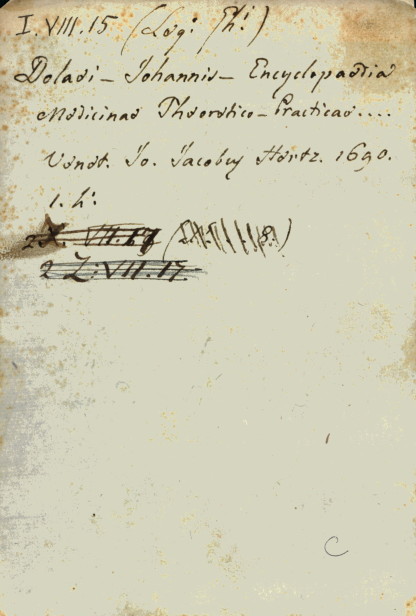 I. VIII. 15 (Log: Th:)
Dolaei - Johannis - Encyclopaedia
Medicinae Theoretico - Practicae....
Venet. Jo. Jacobus Hertz. 1690.
1. h:
2 X. VII. 19
2 Z: VII. 17.
C